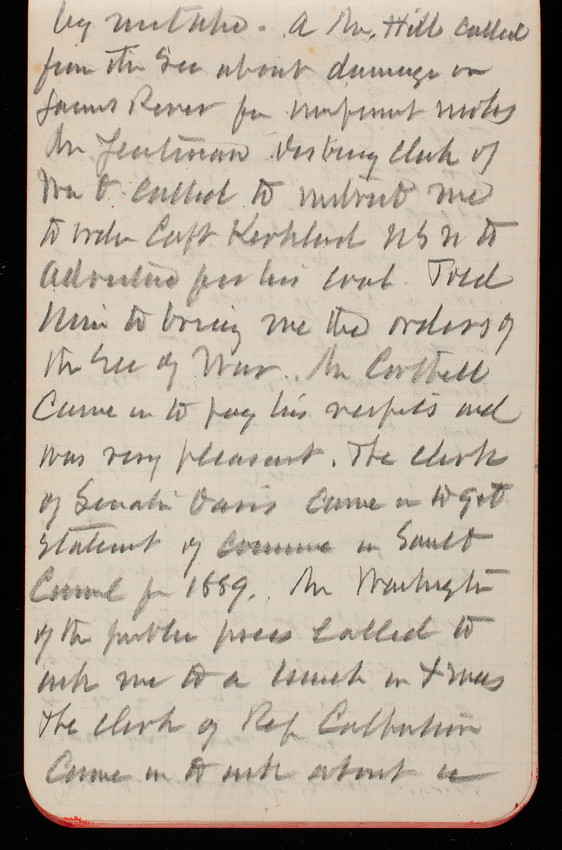 by mistake. A Mr. Hill called
from the Sec about damage on
James River for
Mr Disbursing Clerk of
War D called to instruct me
to order Capt Kirkland USN to
Advertise for his coal. Told
him to bring me the orders of
the Sec of War. Mr
Came in to pay his respects and
was very pleasant. The clerk
of Senator Davis came in to get
statement of commerce in Sault
Canal for 1889. Mr Washington
of the public press called to
ask me to a lunch on Xmas
The clerk of Rep
Came in to ask about a